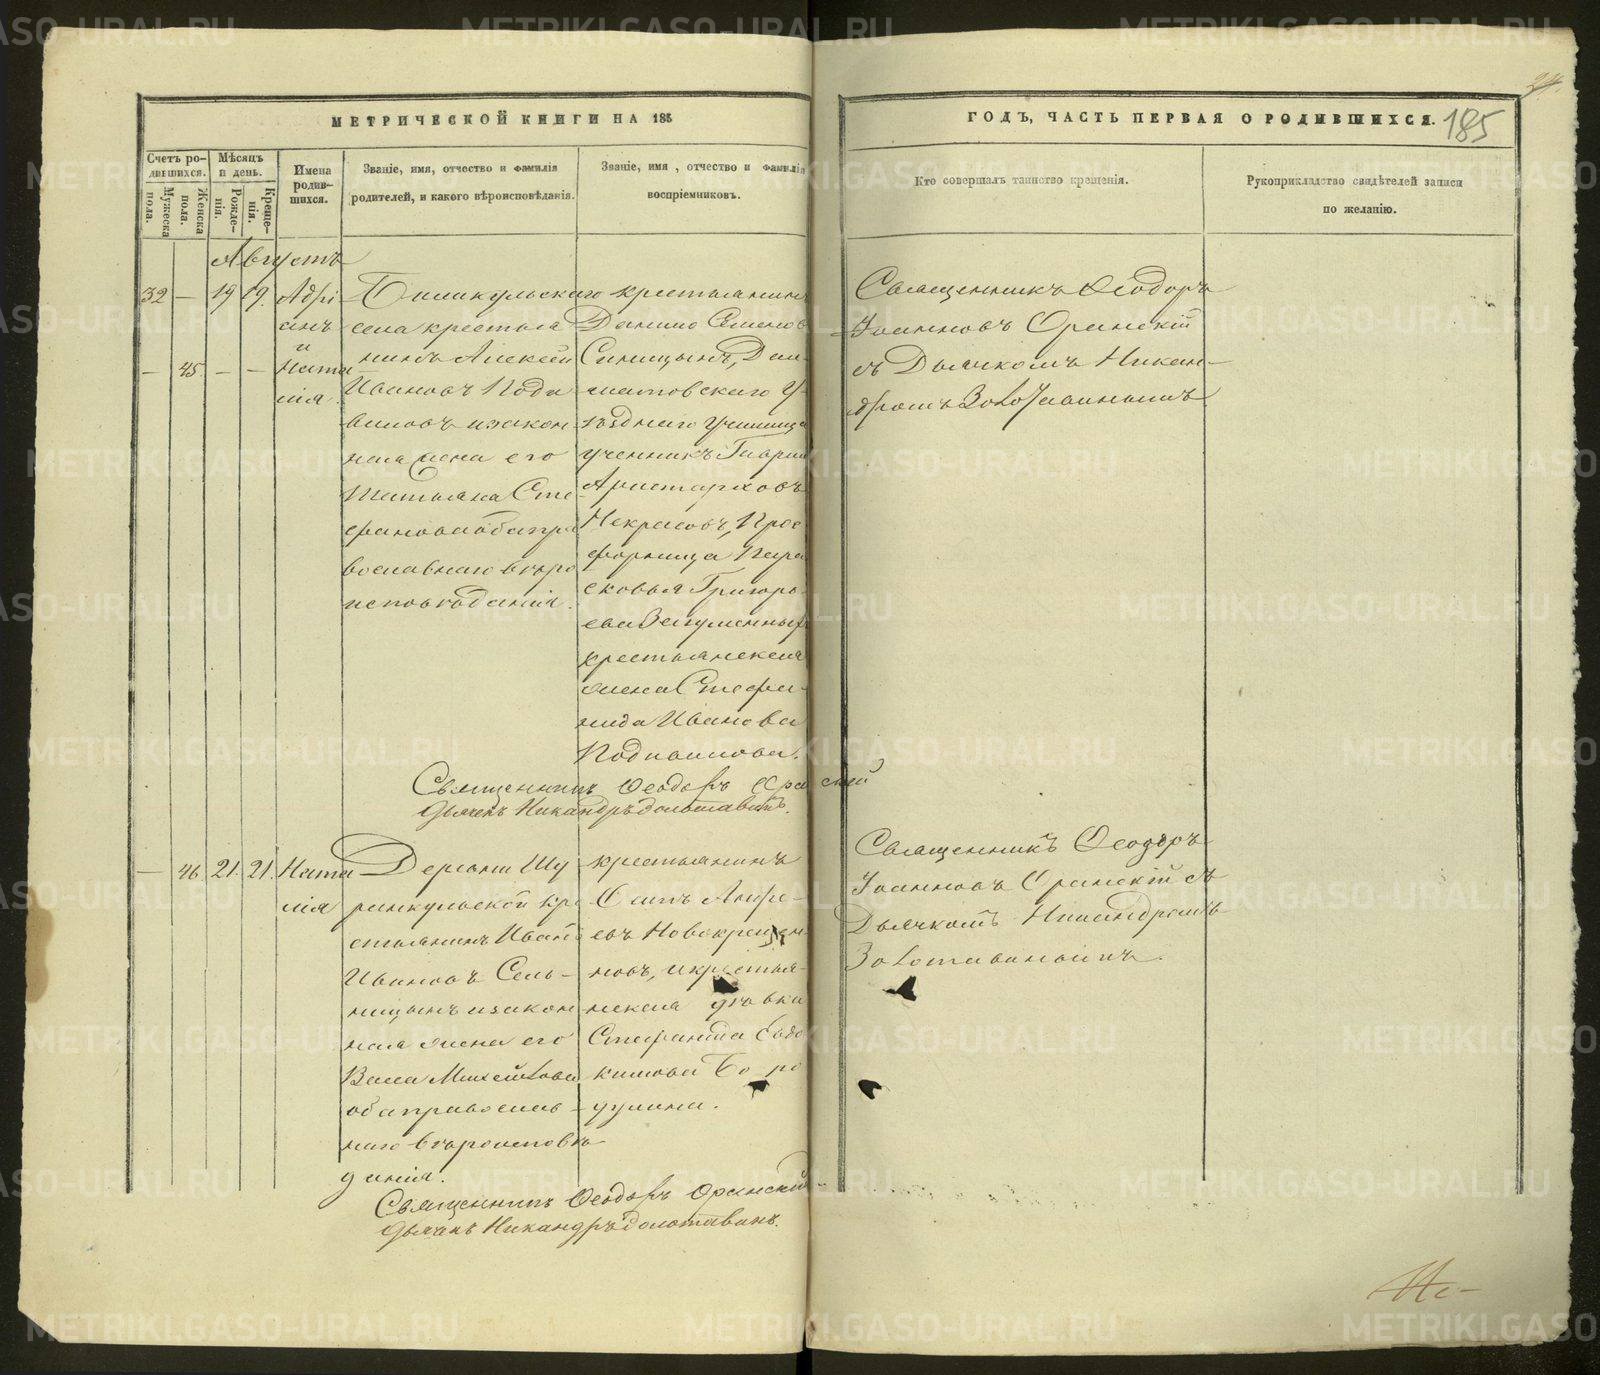 МЕТРИЧЕСКОЙ КНИГИ НА 185
ГОДЪ, ЧАСТЬ ПЕРВАЯ О РОДИВШИХСЯ.
185
Счетъ ро-
дившихся.
Мужеска
пола.
Женска
пола.
Мѣсяцъ
и день.
Рожде-
нія.
Креще-
нія.
Имена
родив-
шихся.
Званіе, имя, отчество и фамилія
родителей, и какого вѣроисповѣданія.
Званіе, имя, отчество и фамилія
воспріемниковъ.
Кто совершалъ таинство крещенія.
Рукоприкладство свидѣтелей записи
по желанію.
Августъ
32 — 19 19.
Адрі
анъ
и
— 45 — —
Ната
лія
села крестья
нинъ Алексѣй
Ивановъ Поди
виловъ изакон
ная жена его
Татьяна Сте
фанова оба пра
вославнаго вѣро
исповѣданія.
крестьянинъ
Данило Семенов
Синицынъ, Дал-
матовскаго У-
ѣзднаго Училища
ученикъ Гаврии
Аристарховъ
Некрасовъ, Прос
форница Пара
сковья Григорь
ева
крестьянская
жена Стефа-
нида Иванова
Подивилова.
Священникъ Ѳеодоръ
Іоанновъ Оранскій
съ Дьячкомъ Никан-
дромъ Золотавинымъ
Священникъ Ѳеодоръ Оранскій
Дьячекъ Никандръ Золотавинъ.
— 46 21. 21.
Ната
лія
Деревни Шу
ранкульской кре
стьянинъ Иванъ
Ивановъ Сель-
ницынъ изакон
ная жена его
оба православ-
наго вѣроисповѣ
данія.
крестьянинъ
Осипъ Андре-
евъ Новокрещен
новъ, и крестья-
нская дѣвка
Стефанида Евдо
кимова Бо ро
дулина.
Священникъ Ѳеодоръ
Іоанновъ Оранскій съ
Дьячкомъ Никандромъ
Золотавинымъ.
Священникъ Ѳеодоръ Оранскій
Дьячекъ Никандръ Золотавинъ.
METRIKI.GASO-URAL.RU